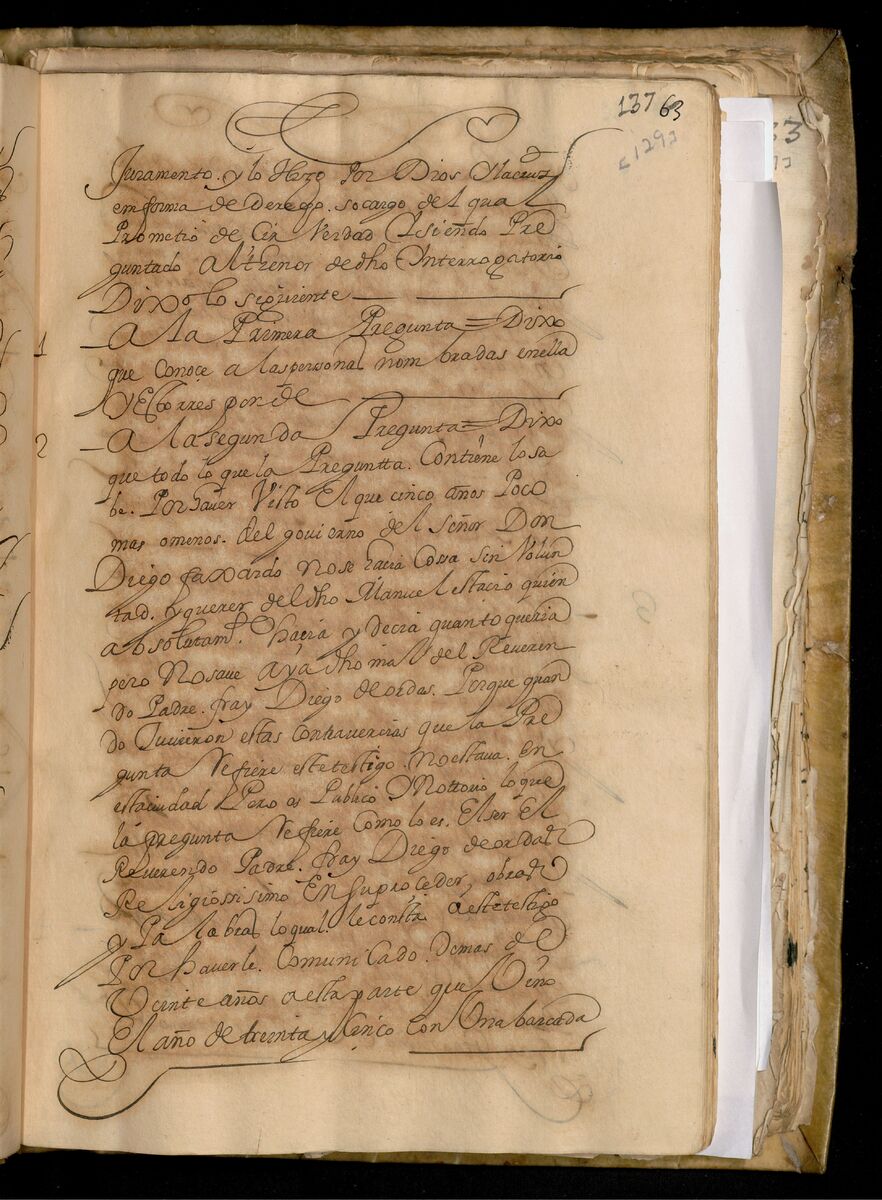 137 63
<129>
Juramento. y lo Hizo Por Dios Ylacruz
em forma de derecho. socargo del qual
Prometio de Cir Verdad Y siendo Pre
guntado Al thenor de dho Ynterrogatorio
Dixo lo siguiente
1 A la Primera Pregunta = Dixo
que conoce a laspersonas nom bradas enella
Y Esto rres ponde
2 A lasegunda Pregunta = Dixo
que todo lo que la Preguntta. Contiene losa
be. Por haver Visto El que cinco años Poco
mas omenos. del govierno del Señor Don
Diego faxardo nose hacia Cosa sin Volun
tad. y querer del dho Manuel estacio quien
absolutamte. hacia y decia quanto queria
pero Nosave aya dho mal del Reveren
do Padre. fray Diego de ordas. Porque quan
do Tuvieron estas Contravercias que la Pre
gunta Refiere estetestigo. noestava. En
estaciudad Pero es Publico Y Nottorio loque
la pregunta Refiere Como lo es. Elser El
Reverendo Padre. fray Diego de ordas
Religiossisimo En su proceder, obras
y Palabras loqual. leconsta aestetestigo
Por haverle. Comunicado. demas de
Veinte años aesta parte que Vino
El año de treinta y Cinco con Una barcada